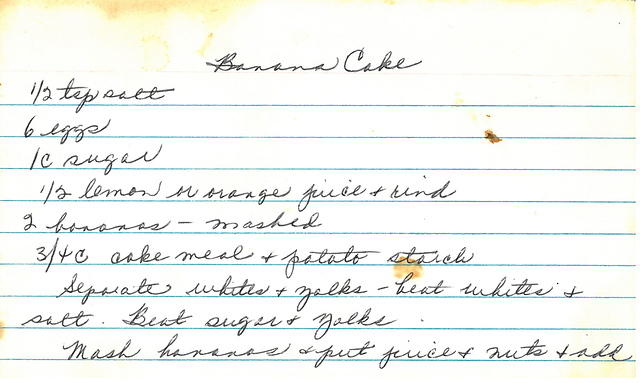 Banana Cake
1/2 tsp salt
6 eggs
1c sugar
1/2 lemon or orange juice + rind
2 bananas - mashed
3/4c cake meal + potato starch
Separate whites + yolks - beat whites +
salt. Beat sugar + yolks.
Mash bananas + put juice + nuts + add